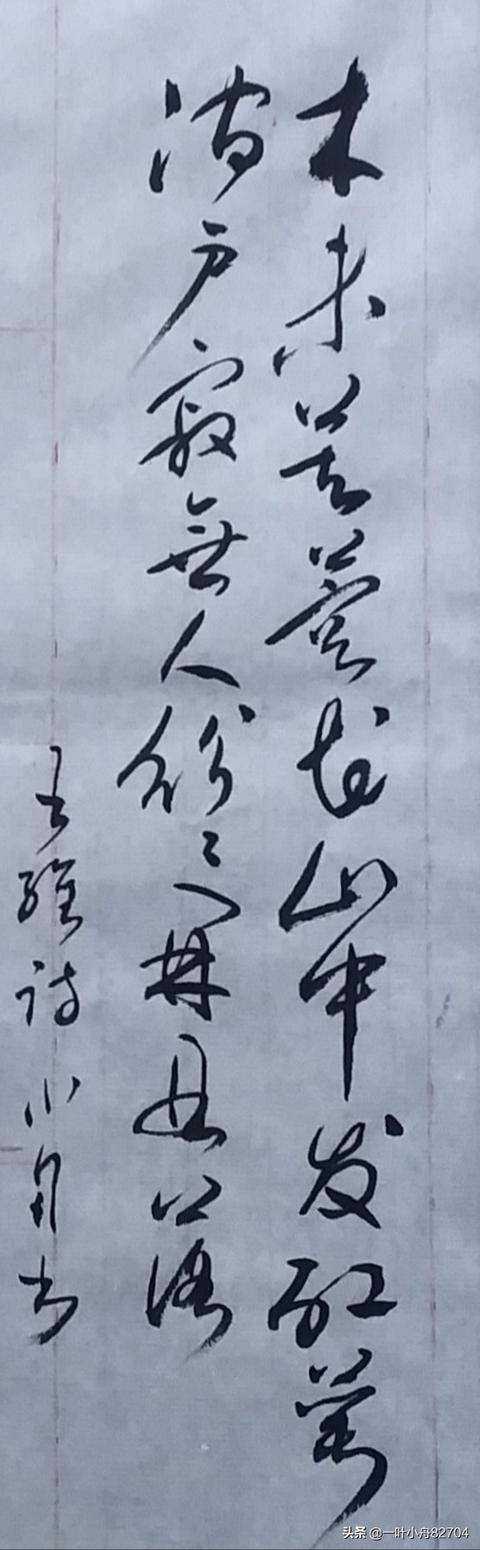 木末芙蓉花山中发红萼
涧户寂無人纷々开且落
王维诗小舟书
头条 @一叶小舟82704